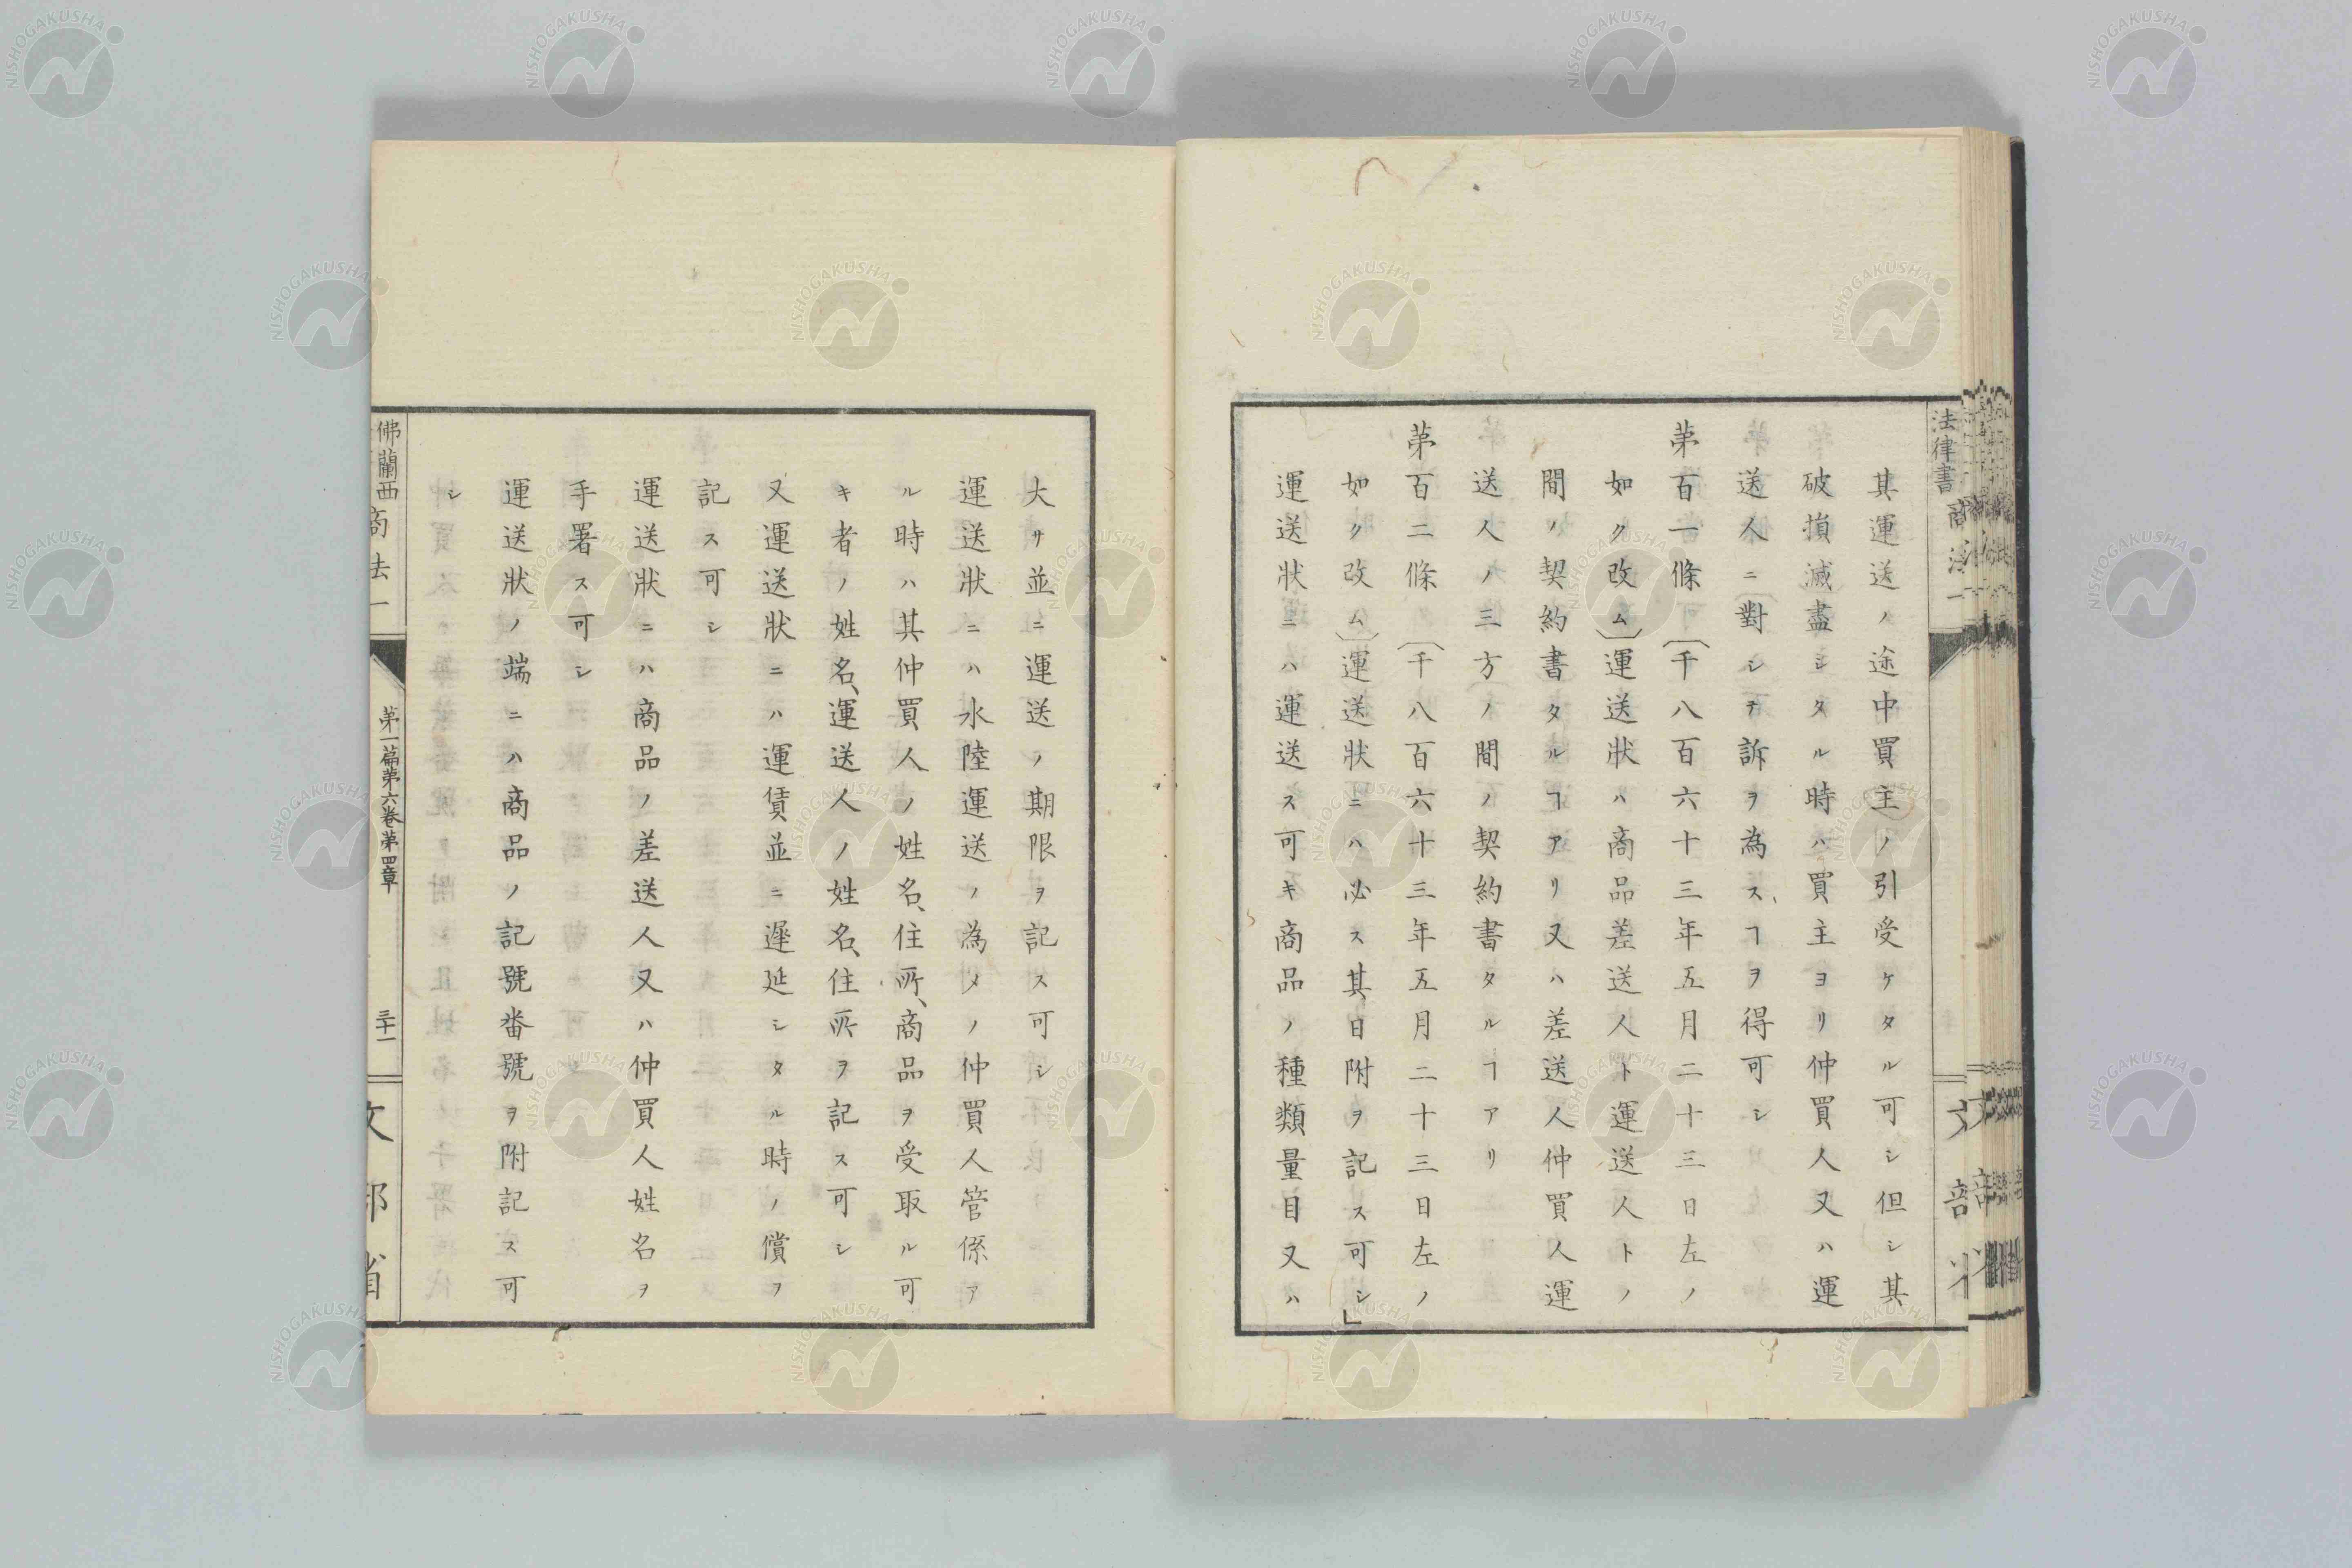 法律書
其運送ノ途中買主ノ引受ケタル可シ但シ其
破損滅盡シタル時ハ買主ヨリ仲買人又ハ運
送人ニ對シテ訴ヲ為スヿヲ得可シ
第百一條〔千八百六十三年五月二十三日左ノ
如ク改ム〕運送狀ハ商品差送人ト運送人トノ
間ノ契約書タルヿアリ又ハ差送人仲買人運
送人ノ三方ノ間ノ契約書タルヿアリ
第百二條〔千八百六十三年五月二十三日左ノ
如ク改ム〕運送狀ニハ必ス其日附ヲ記ス可シ」
運送狀ニハ運送ス可キ商品ノ種類量目又ハ
大サ並ニ運送ノ期限ヲ記ス可シ
運送狀ニハ水陸運送ノ為メノ仲買人管係ア
ル時ハ其仲買人ノ姓名、住所、商品ヲ受取ル可
キ者ノ姓名、運送人ノ姓名、住所ヲ記ス可シ
又運送狀ニハ運賃並ニ遲延シタル時ノ償ヲ
記ス可シ
運送狀ニハ商品ノ差送人又ハ仲買人姓名ヲ
手署ス可シ
運送狀ノ端ニハ商品ノ記號番號ヲ附記ス可
シ
佛蘭西商法一
第一篇第六卷第四章
三十一
文部省
NISHOGAKUSHA